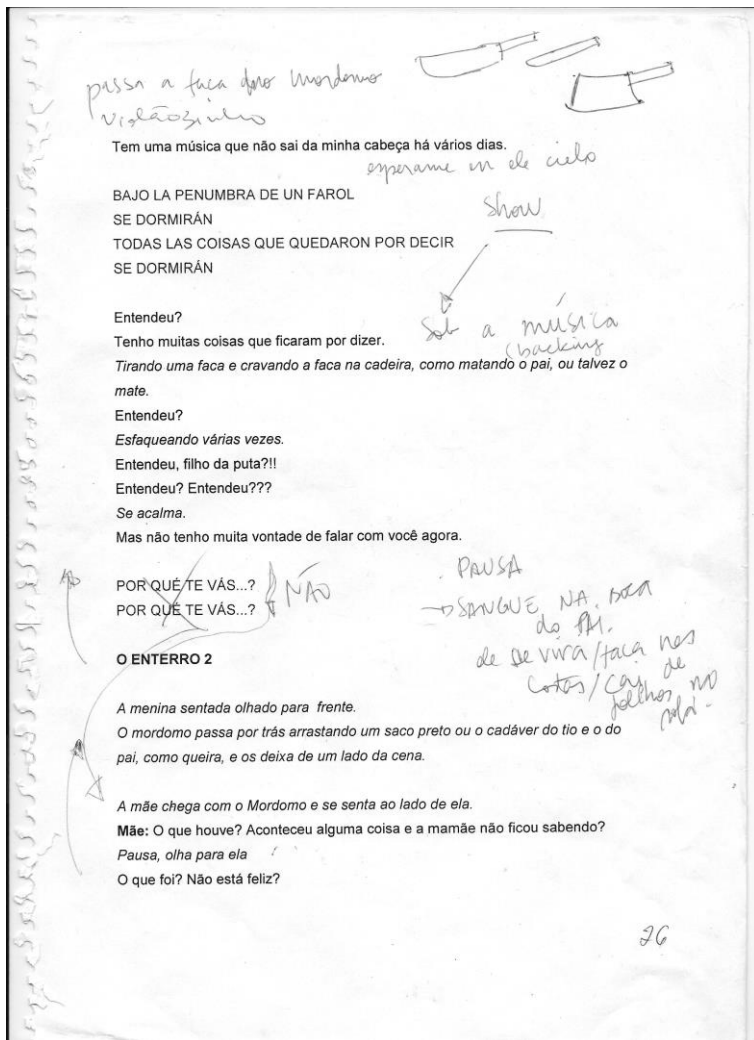 passa a faca do mordomo
violãozinho
Tem uma música que não sai da minha cabeça há vários dias.
esperame en ele cielo
BAJO LA PENUMBRA DE UN FAROL
SE DORMIRÁN
TODAS LAS COISAS QUE QUEDARON POR DECIR
SE DORMIRÁN
Show
Entendeu?
Tenho muitas coisas que ficaram por dizer.
Sob a música
(backing
Tirando uma faca e cravando a faca na cadeira, como matando o pai, ou talvez o
mate.
Entendeu?
Esfaqueando várias vezes.
Entendeu, filho da puta?!!
Entendeu? Entendeu???
Se acalma.
Mas não tenho muita vontade de falar com você agora.
POR QUÉ TE VÁS...?
POR QUÉ TE VÁS...?
NÃO
PAUSA
SANGUE NA BOCA
do PAI.
ele se vira/faca nas
costas/cai de
joelhos no
O ENTERRO 2
A menina sentada olhado para frente.
O mordomo passa por trás arrastando um saco preto ou o cadáver do tio e o do
pai, como queira, e os deixa de um lado da cena.
A mãe chega com o Mordomo e se senta ao lado de ela.
Mãe: O que houve? Aconteceu alguma coisa e a mamãe não ficou sabendo?
Pausa, olha para ela
O que foi? Não está feliz?
26